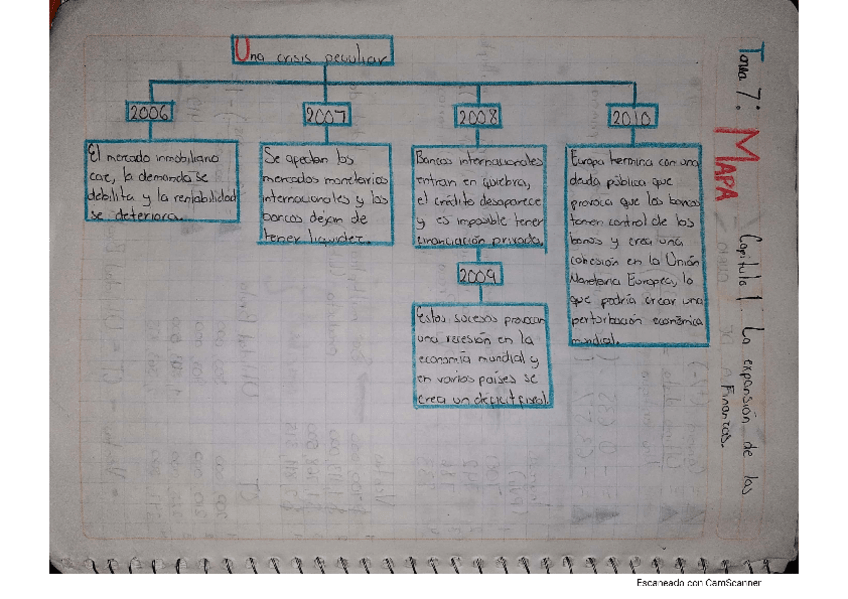 Tema 7: MAPA
Capitulo 1. La expansión de las
Finanzas.
Una crisis peculiar
2006
El mercado inmobiliario
cae, la demanda se
debilita y la rentabilidad
se deteriora.
2007
Se afectan los
mercados monetarios
internacionales y los
bancos dejan de
tener liquidez.
2008
Bancos internacionales
entran en quiebra,
el crédito desaparece
y es imposible tener
financiación privada.
2009
Estos sucesos provocan
una recesión en la
economía mundial y
en varios países se
crea un déficit fiscal.
2010
Europa termina con una
deuda pública que
provoca que los bancos
tomen control de los
bonos y crea una
cohesión en la Unión
Monetaria Europea, lo
que podría crear una
perturbación económica
mundial.
Escaneado con CamScanner